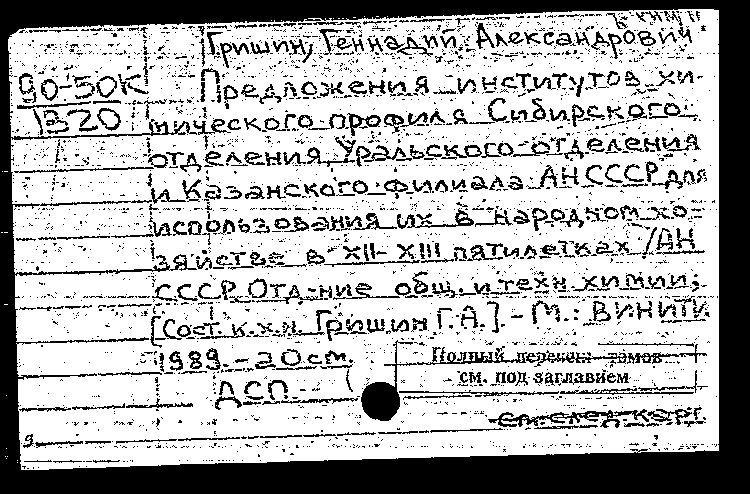 к ким п
Гришин, Геннадий Александрович
90-50К
1320
Предложения институтов хи-
мического профиля Сибирского
отделения, Уральского отделения
и Казанского филиала АН СССР для
использования их в народном хо-
зяйстве в XII-XIII пятилетках /АН
СССР. Отд-ние общ. и техн. химии;
[Сост. к.х.н. Гришин Г.А.]. - М.: ВИНИТИ
1989. - 20 см.
ДСП.
Полный перечень томов
см. под заглавием
см. след. карт.